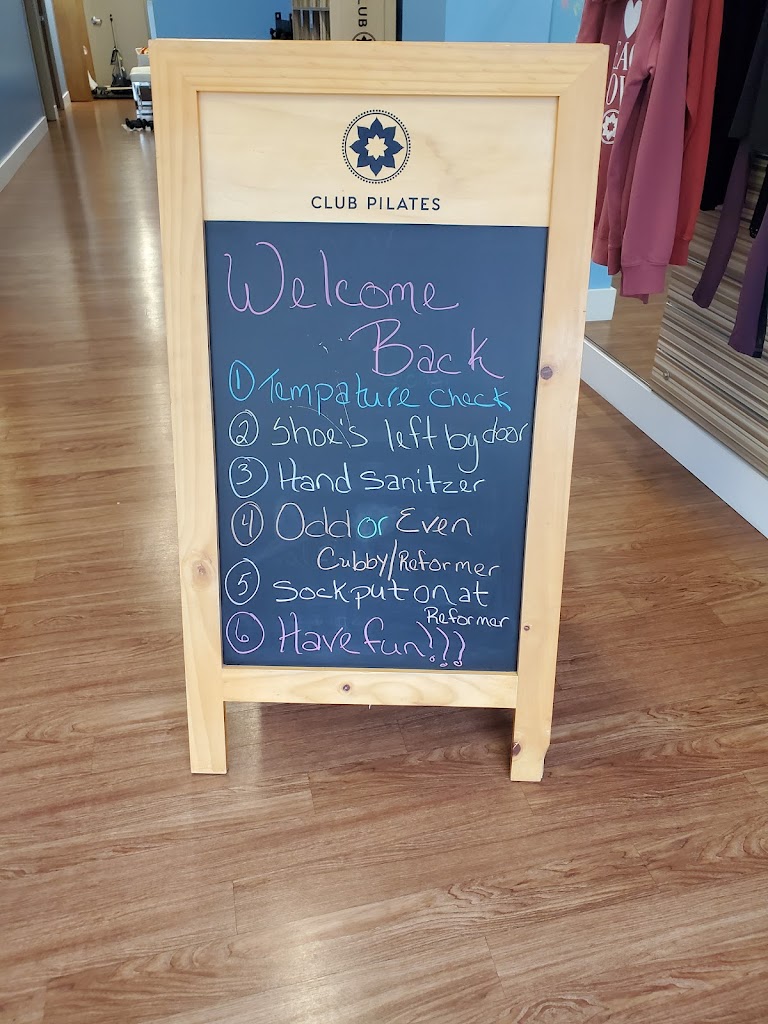 CLUB
CLUB PILATES
Welcome
Back
1 Tempature check
2 Shoe's left by door
3 Hand sanitzer
4 Odd or Even
Cubby/Reformer
5 Sock put on at
Reformer
6 Have fun!!!